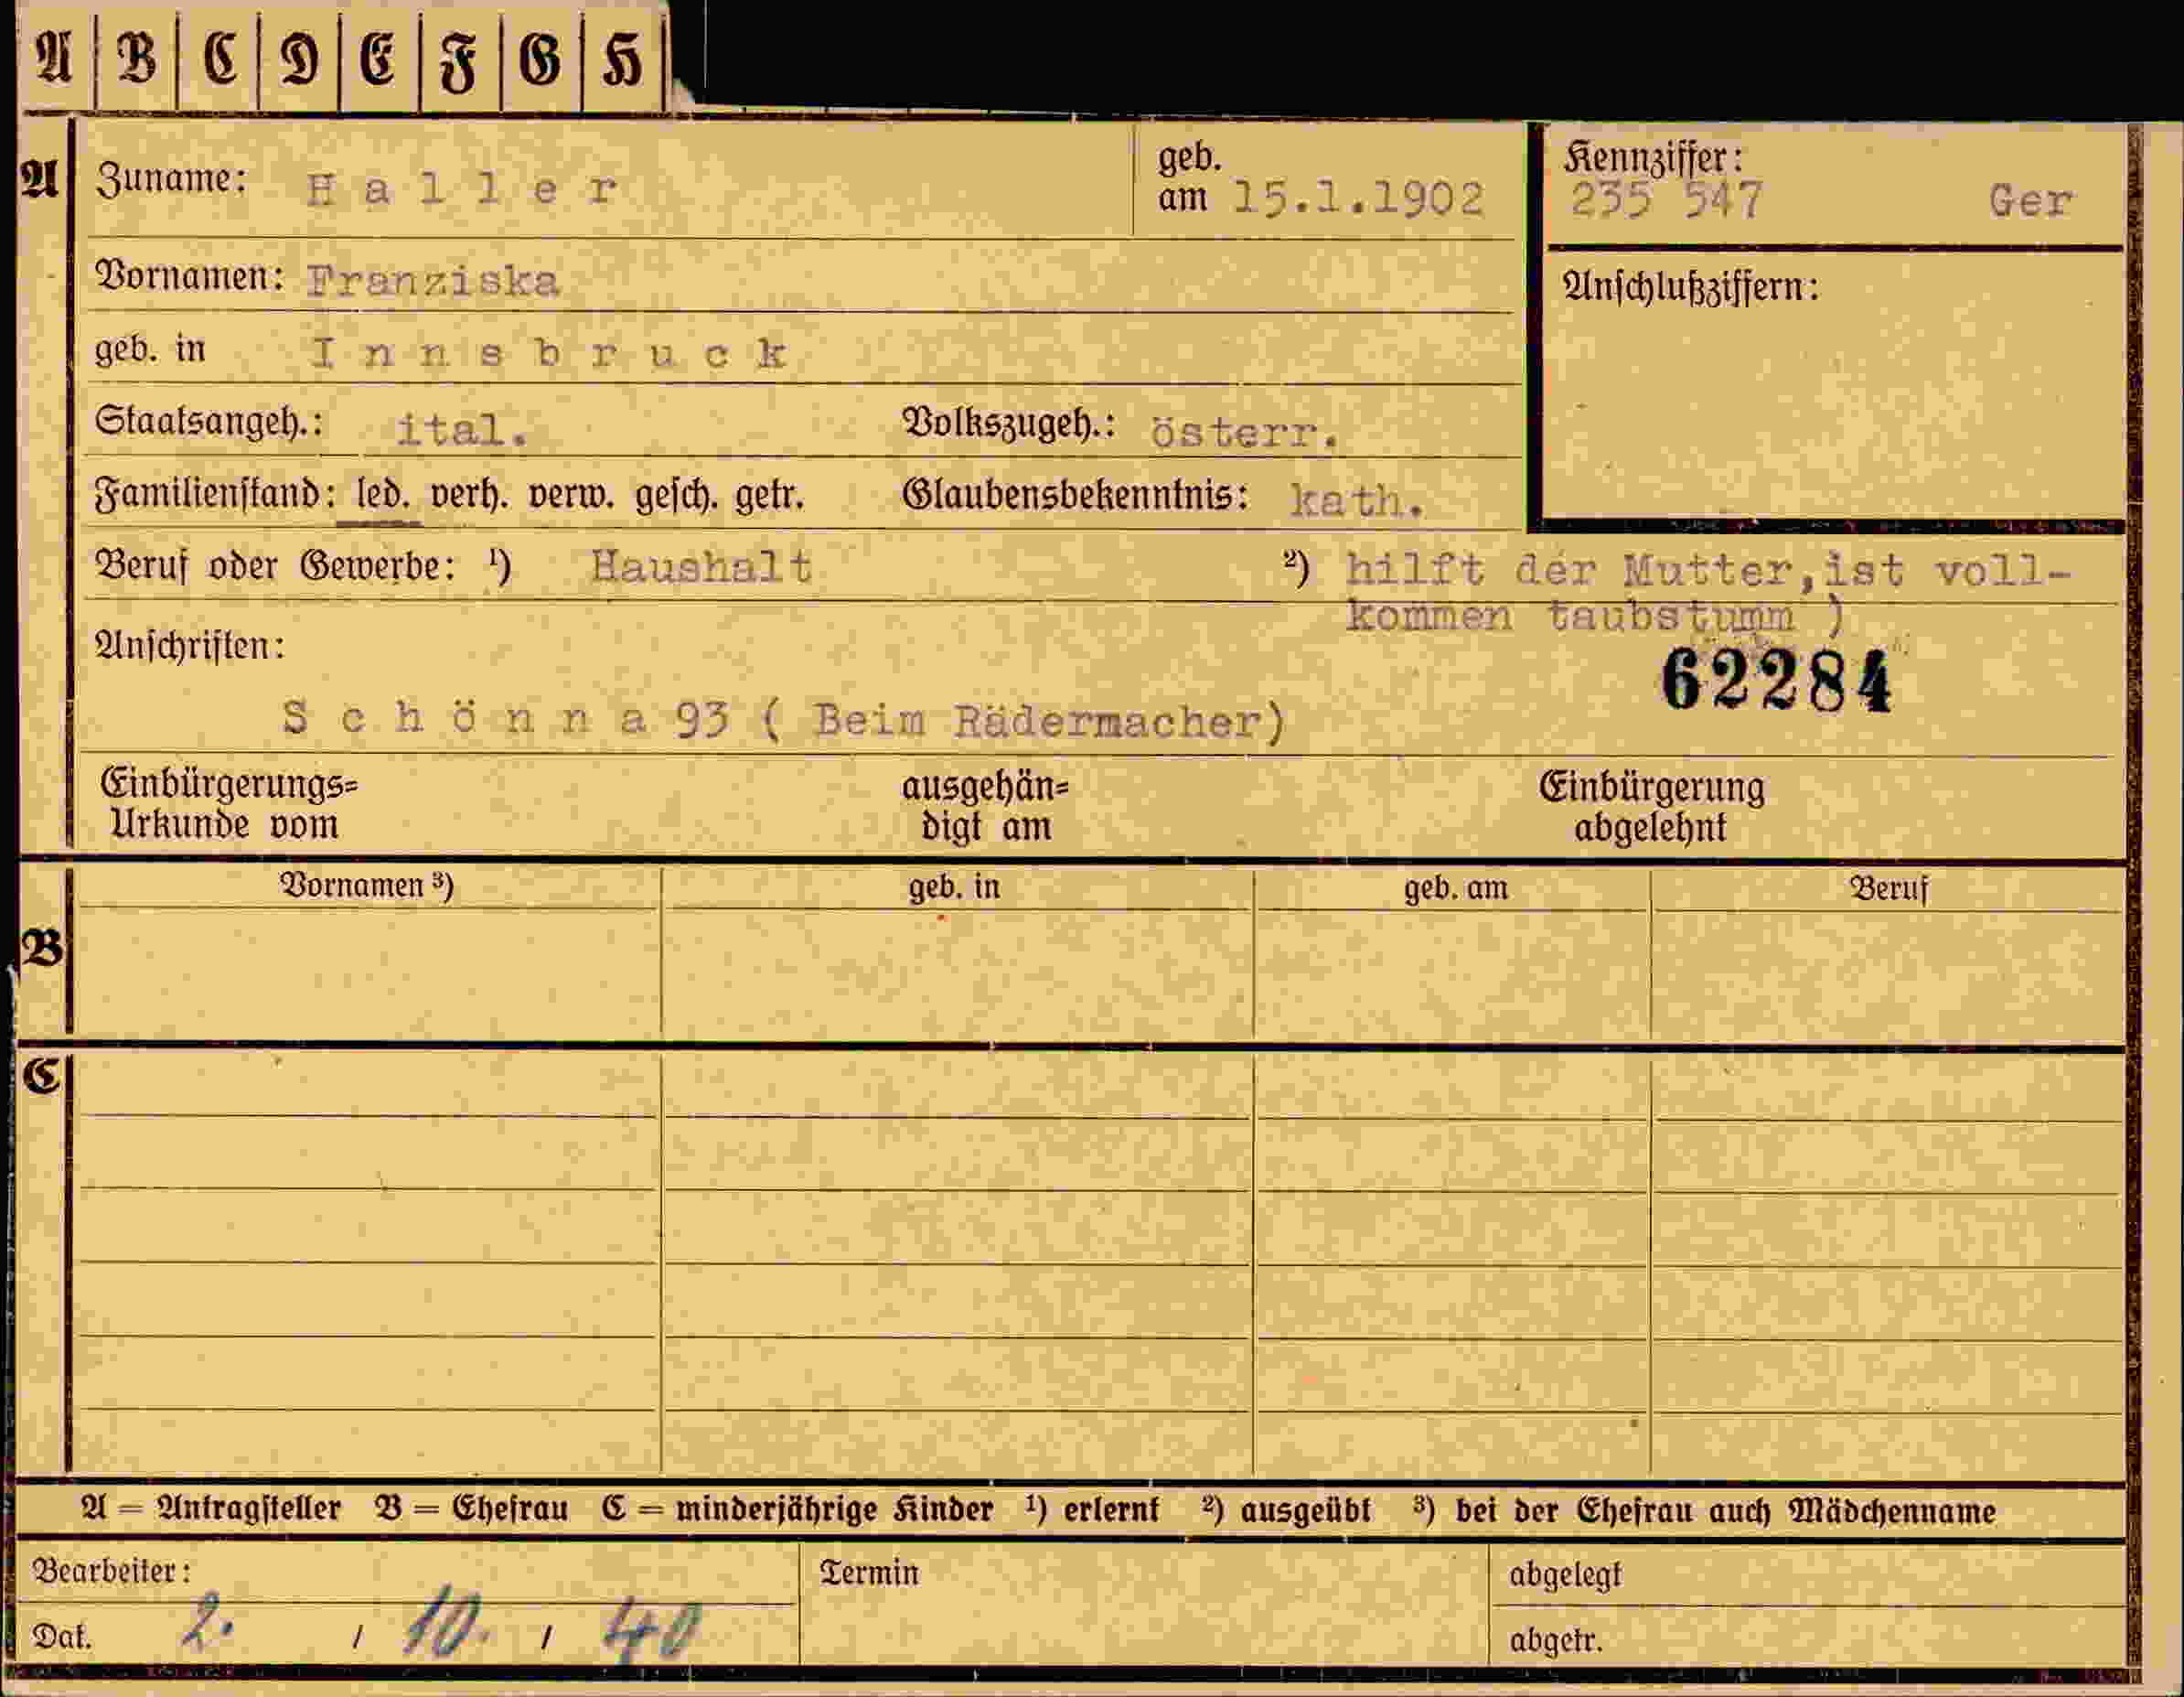 A B C D E F G H
A Zuname: H a l l e r geb. am 15.1.1902 Kennziffer: 235 547 Ger
Vornamen: Franziska Anschlußziffern:
geb. in I n n s b r u c k
Staatsangeh.: ital. Volkszugeh.: österr.
Familienstand: led. verh. verw. gesch. getr. Glaubensbekenntnis: kath.
Beruf oder Gewerbe: ¹) Haushalt ²) hilft der Mutter,ist voll-
kommen taubstumm )
Anschriften:
62284
S c h ö n n a 93 ( Beim Rädermacher)
Einbürgerungs= ausgehän= Einbürgerung
Urkunde vom digt am abgelehnt
Vornamen ³) geb. in geb. am Beruf
B
C
A = Antragsteller B = Ehefrau C = minderjährige Kinder ¹) erlernt ²) ausgeübt ³) bei der Ehefrau auch Mädchenname
Bearbeiter: Termin abgelegt
Dat. 2. / 10. / 40 abgetr.